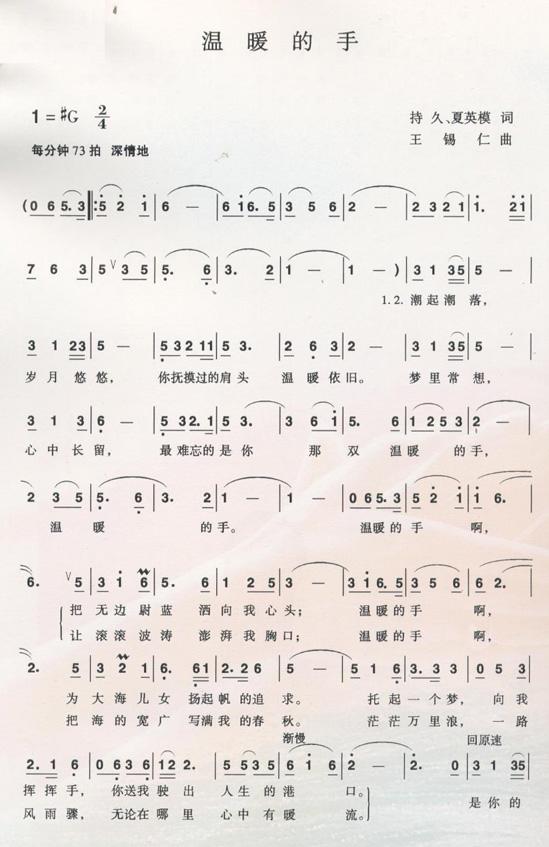 温暖的手
1=#G 2/4
持久、夏英模 词
王锡仁 曲
每分钟73拍 深情地
(0 6 5. 3 5 2 1 6 — 6 1 6. 5 3 5 6 2 — 2 3 2 1 1. 2 1
7 6 3 5 3 5 5. 6 3. 2 1 — 1 —) 3 1 3 5 5 —
1.2.潮起潮落，
3 1 2 3 5 — 5 3 2 1 1 5 3. 2 6 3 2 — 3 1 3 5 5 —
岁月悠悠， 你抚摸过的肩头 温暖依旧。 梦里常想，
3 1 3 6 — 5 3 2. 1 5 3. 3 6 1 5. 6 1 2 5 3 2 —
心中长留， 最难忘的是你 那双温暖的手，
2 3 5 5. 6 3. 2 1 — 1 — 0 6 5. 3 5 2 1 1 6.
温暖的手。 温暖的手啊，
6. 5 3 1 6 5. 6 1 2 5 3 — 3 1 6. 5 3 5 6 2.
把无边蔚蓝 洒向我心头； 温暖的手啊，
让滚滚波涛 澎湃我胸口； 温暖的手啊，
2. 5 3 2 1 6. 6 1 2. 2 6 5 — 5 1 6 3. 3 3 0 5 3
为大海儿女 扬起帆的追求。 托起一个梦，向我
把海的宽广 写满我的春秋。 茫茫万里浪，一路
渐慢 回原速
2. 1 6 0 6 3 6 1 2 2. 5 5 3 5 6 1 6 2 — 2. 0 3 1 3 5
挥挥手， 你送我驶出 人生的港口。 是你的
风雨骤， 无论在哪里 心中有暖流。